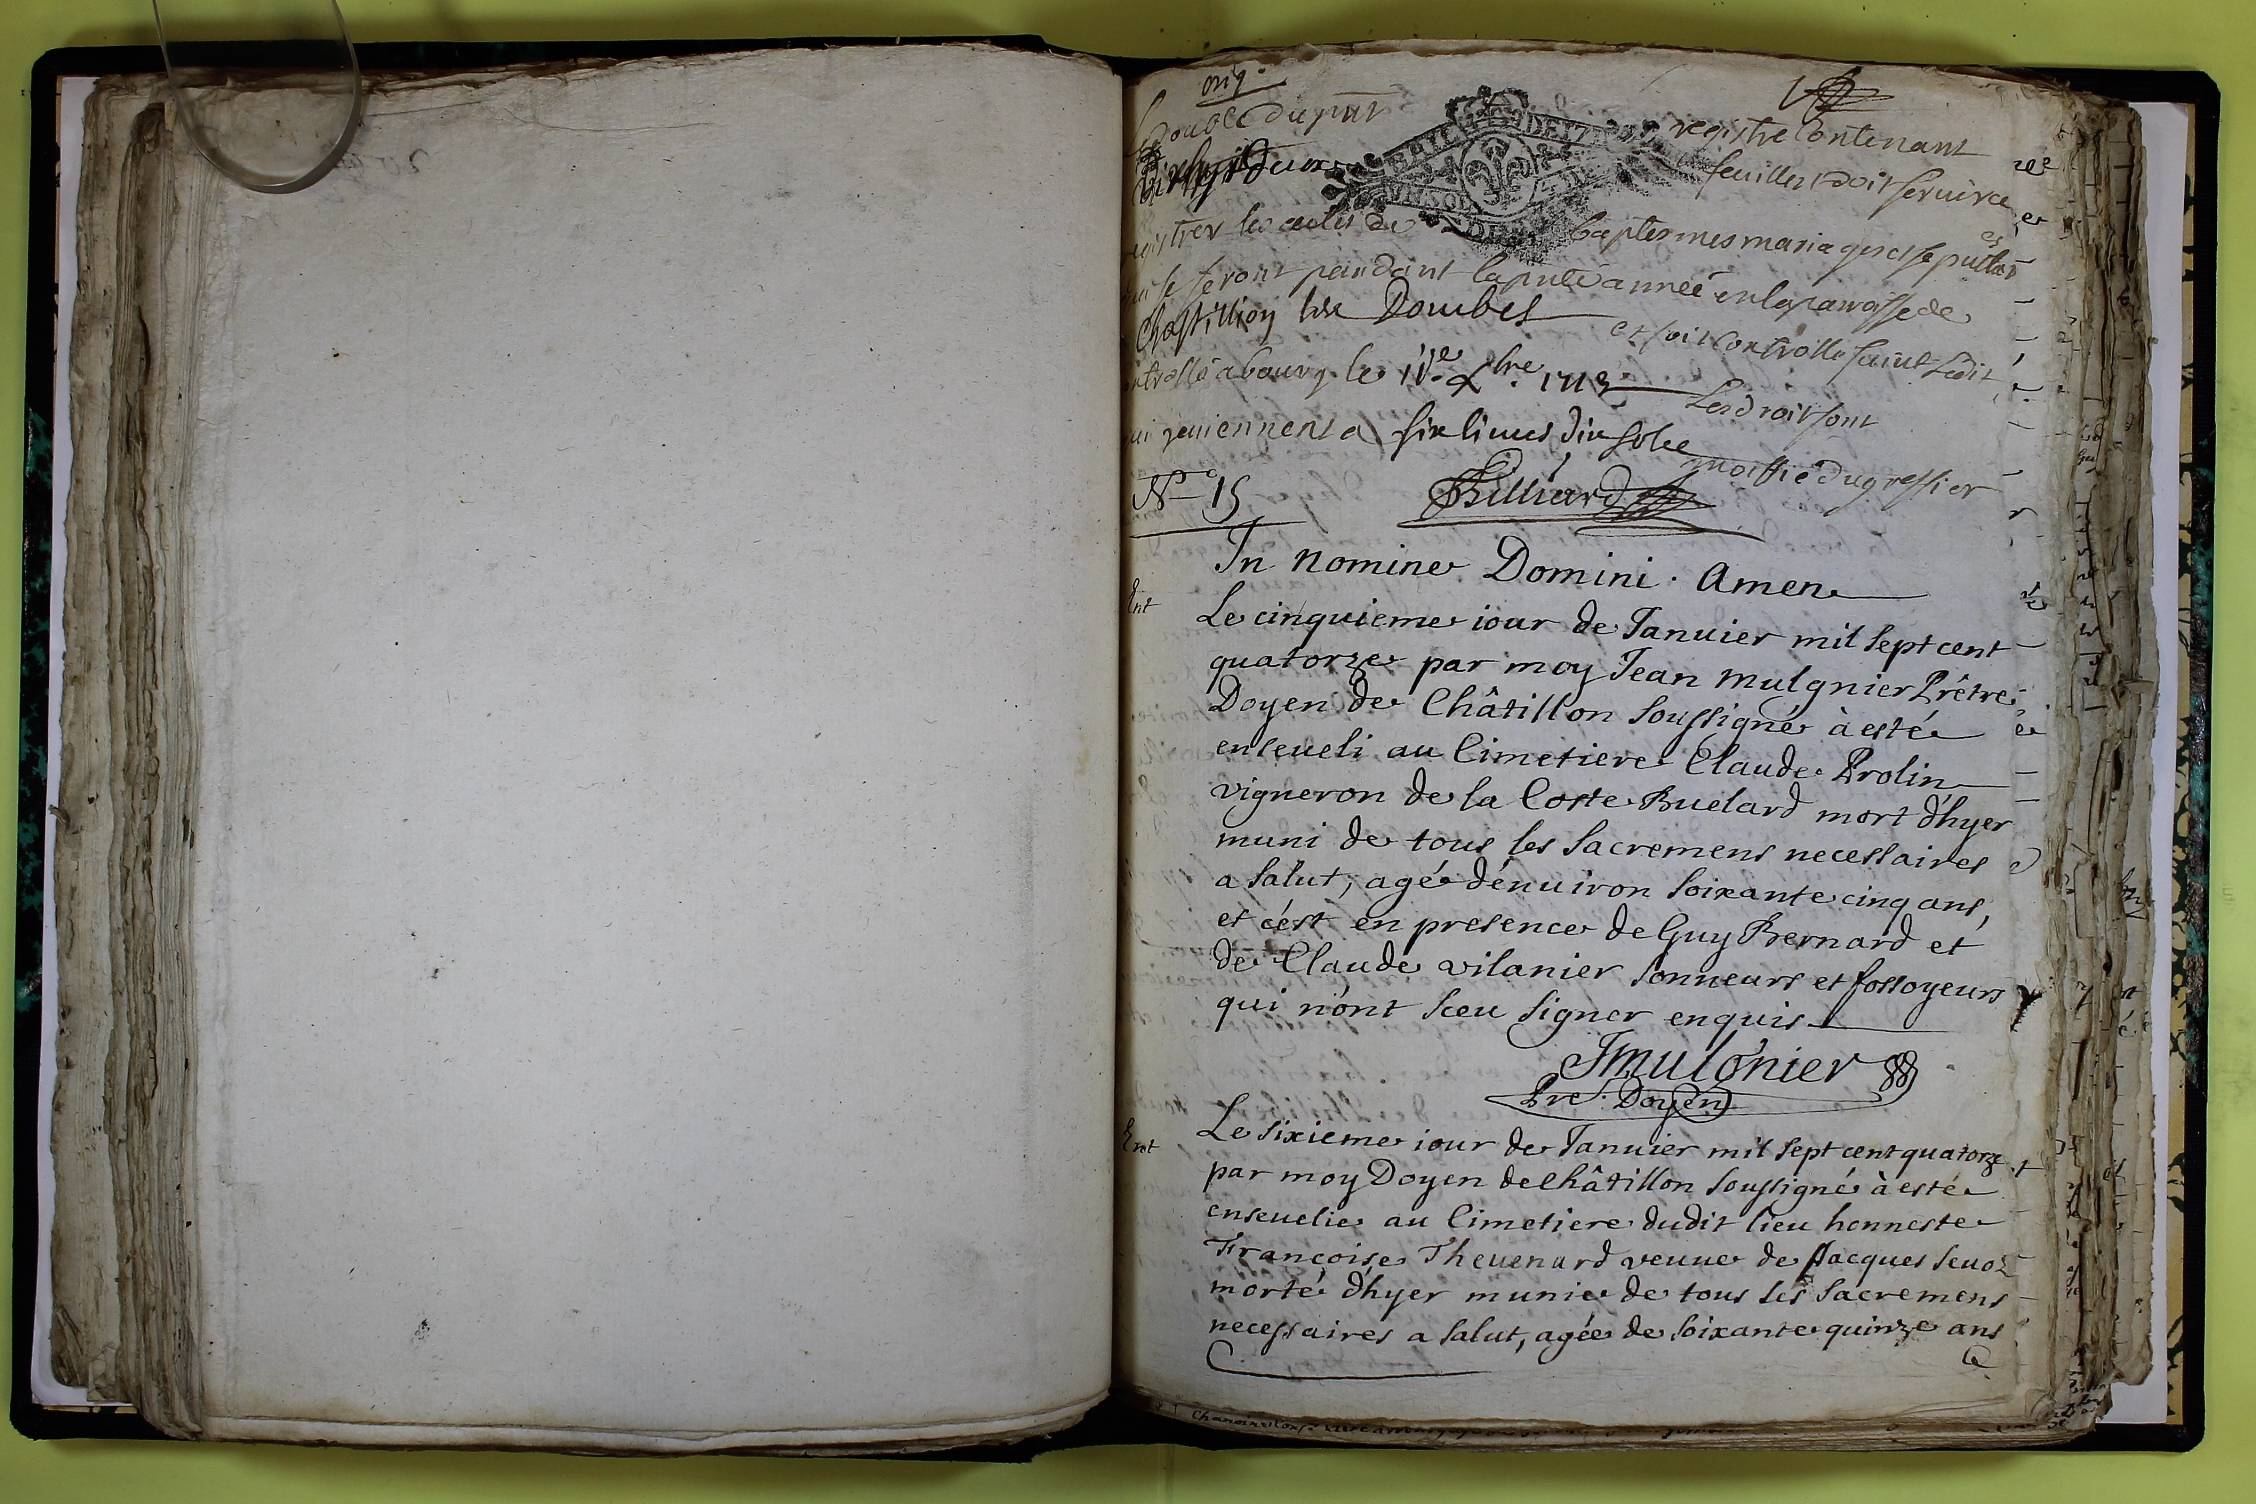 orig.
Le double du pnt registre contenant
feuillets doit servir a
registrer les actes de baptesmes mariages et sepultures
qui se feront pendant la pnte année en la parroisse de
Chastillion les Dombes et soit controllé suiut Ledit
controllé a bourg le 11e. Xbre. 1713 Les droit sont
qui reuiennent a six liures dix sols moittié du greffier
No 15
Billiard
In nomine Domini. Amen
Ent
Le cinquieme iour de Ianuier mil sept cent
quatorze par moy Jean Mulgnier Prêtre,
Doyen de Châtillon soussigné à esté
enseueli au Cimetiere Claude Prolin
vigneron de la Coste Buelard mort d'hyer
muni de tous les sacremens necessaires
a salut, agé d'enuiron soixante cinq ans,
et c'est en presence de Guy Bernard et
de Claude vilanier sonneurs et fossoyeurs
qui n'ont sceu signer enquis
JMulgnier
Pre. Doyen
Ent
Le sixieme iour de Ianuier mil sept cent quatorze
par moy Doyen de Châtillon soussigné à esté
enseuelie au Cimetiere dudit lieu honneste
Françoise Theuenard veuue de Jacques seuoz
morte d'hyer munie de tous les sacremens
necessaires a salut, agée de soixante quinze ans